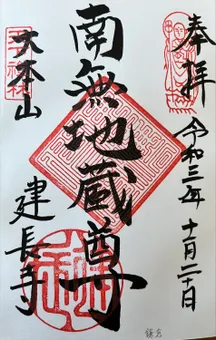 奉拝
令和三年十一月二十日
南無地蔵尊
大本山
建長寺
鎌倉